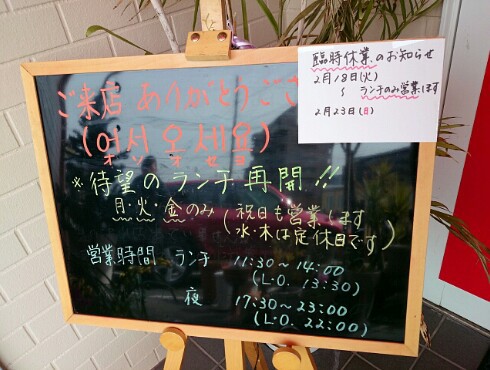 ご来店 ありがとうござ
(어서 오세요)
オソ オセヨ
※待望のランチ再開!!
月・火・金のみ(祝日も営業します
水・木は定休日です)
営業時間 ランチ 11:30~14:00
(L.O. 13:30)
夜 17:30~23:00
(L.O. 22:00)
臨時休業のお知らせ
2月18日(火)
~ ランチのみ営業します
2月23日(日)